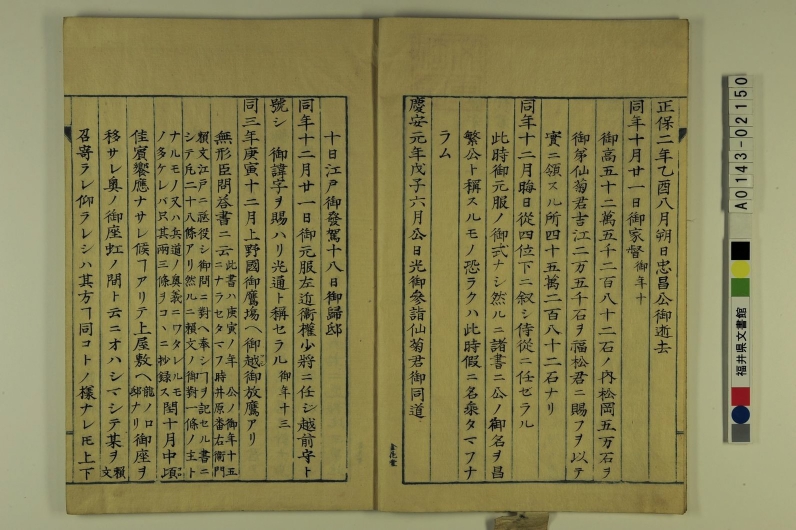 正保二年乙酉八月朔日忠昌公御逝去
同年十月廿一日御家督御年十
御高五十二萬五千二百八十二石ノ內松岡五万石ヲ
御弟仙菊君吉江二万五千石ヲ福松君ニ賜フヲ以テ
實ニ領スル所四十五萬二百八十二石ナリ
同年十二月晦日從四位下ニ叙シ侍從ニ任セラル
此時御元服ノ御式ナシ然ルニ諸書ニ公ノ御名ヲ昌
繁公ト稱スルモノ恐ラクハ此時假ニ名乘タマフナ
ラム
慶安元年戊子六月公日光御參詣仙菊君御同道
十日江戸御發駕十八日御歸邸
同年十二月廿一日御元服左近衛權少將ニ任シ越前守ト
號シ 御諱字ヲ賜ハリ光通ト稱セラル 御年十三
同三年庚寅十二月上野國御鷹場ヘ御越御放鷹アリ
無形臣問答書ニ云此書ハ庚寅ノ年 公ノ御年十五ニナラセタマフ時井原番右衛門
賴文江戸ニ謡役シ御問ニ對ヘ奉シヿヲ記セル書ニ
シテ凢二十八條アリ然ルニ賴文ノ御對一條ノ主ト
ナルモノ又ハ兵道ノ奥義ニワタレルモ
ノ多ケレバ只其兩三條ヲコヽニ抄錄ス閏十月中頃
佳賓饗應ナサレ候ヿアリテ上屋敷ヘ龍ノ口邸ナリ御座ヲ
移サレ奧ノ御座虹ノ間ト云ニオハシマシテ某ヲ賴文
召寄ラレ仰ラレシハ其方ヿ同コトノ樣ナレ𪜈上下
金花堂
A0143-02150
福井県文書館